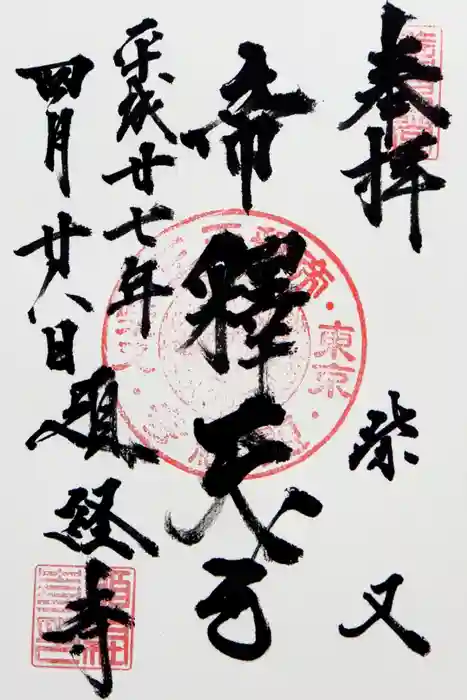 奉拝
柴又
帝釋天王
平成廿七年
四月廿八日
題経寺
東京